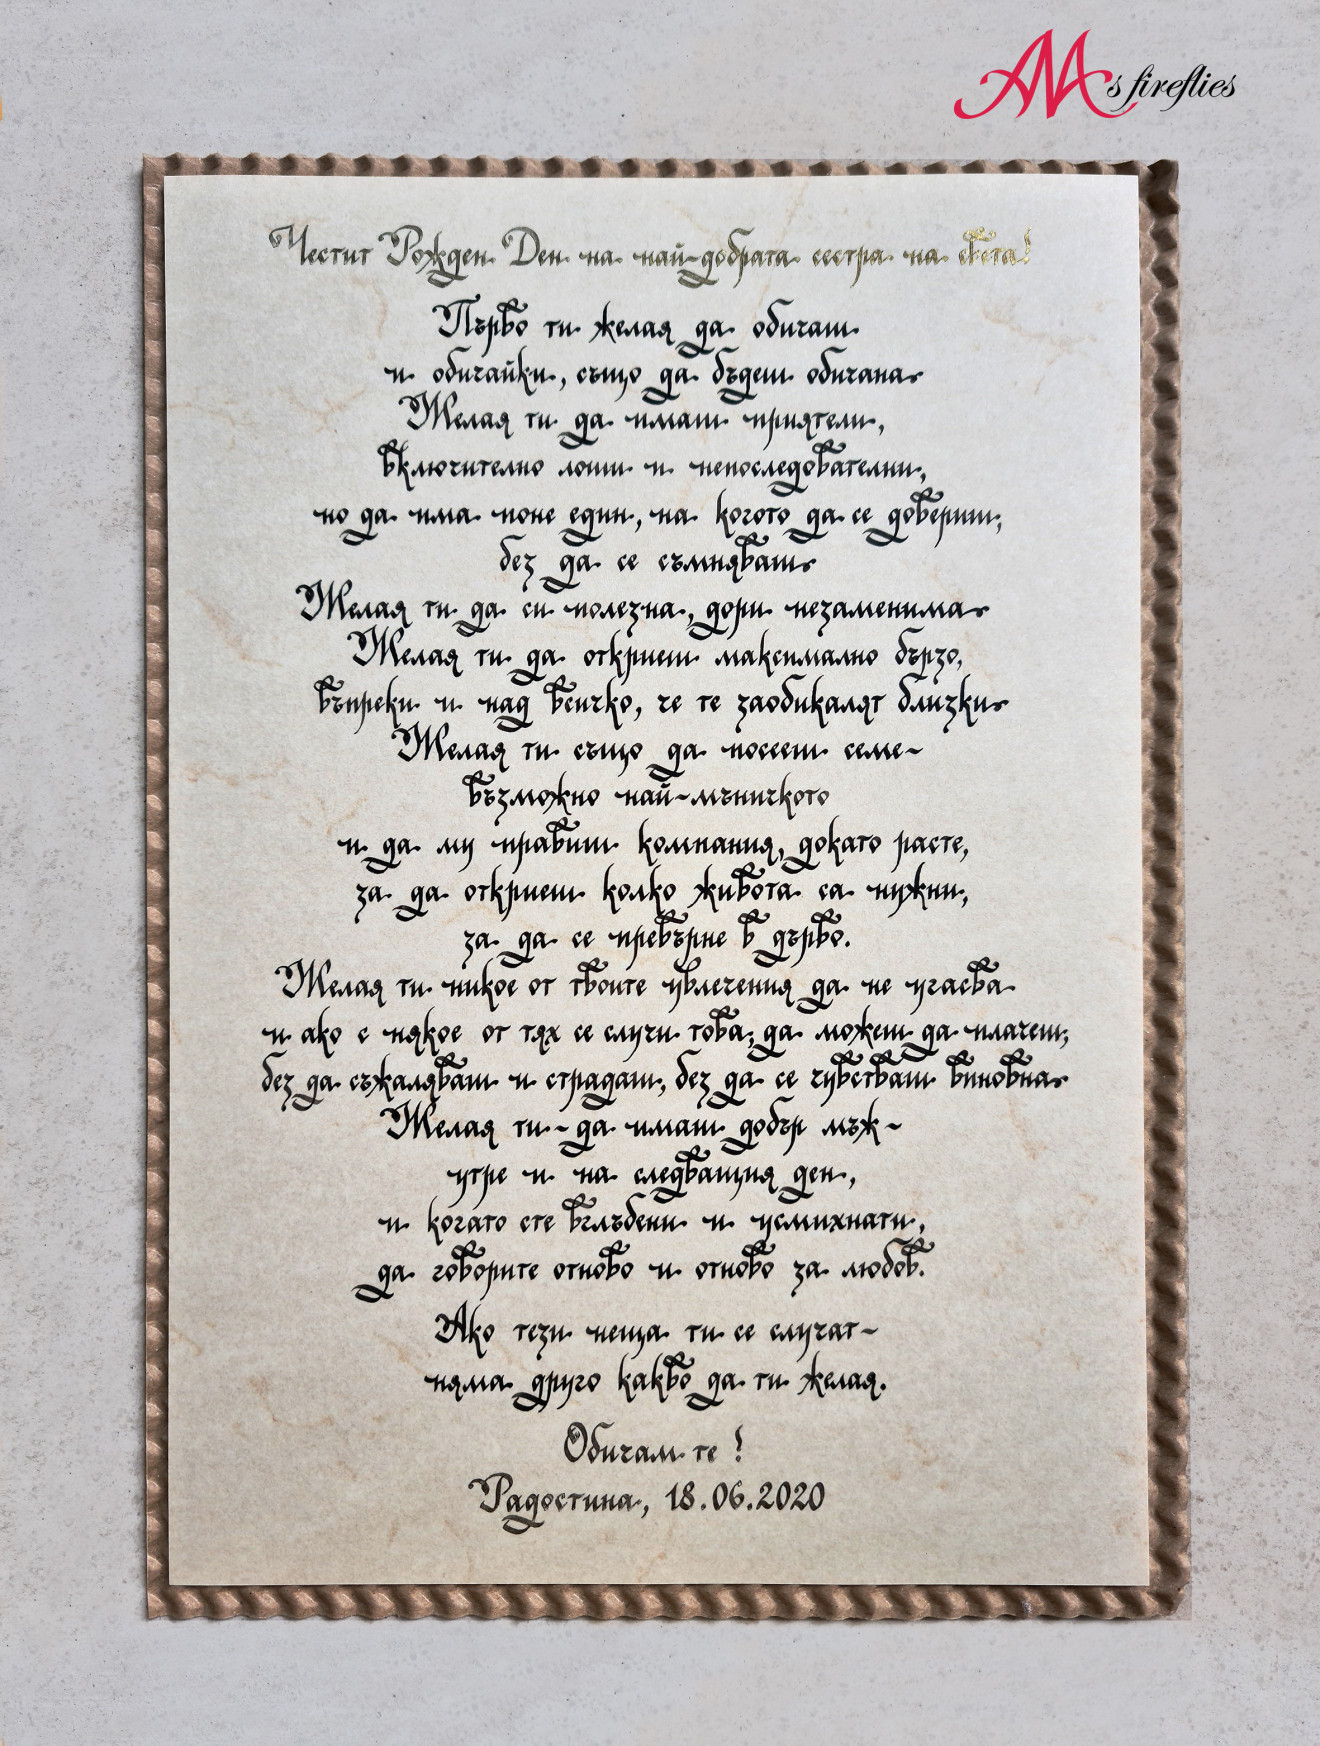 AMs fireflies
Честит Рожден Ден на най-добрата сестра на света!
Първо ти желая да обичаш
и обичайки, също да бъдеш обичана.
Желая ти да имаш приятели,
включително лоши и непоследователни,
но да има поне един, на когото да се довериш,
без да се съмняваш.
Желая ти да си полезна, дори незаменима.
Желая ти да откриеш максимално бързо,
въпреки и над всичко, че те заобикалят близки.
Желая ти също да посееш семе-
възможно най-мъничкото
и да му правиш компания, докато расте,
за да откриеш колко живота са нужни,
за да се превърне в дърво.
Желая ти никое от твоите увлечения да не угасва
и ако с някое от тях се случи това, да можеш да плачеш,
без да съжаляваш и страдаш, без да се чувстваш виновна.
Желая ти - да имаш добър мъж -
утре и на следващия ден,
и когато сте вглъбени и усмихнати,
да говорите отново и отново за любов.
Ако тези неща ти се случат -
няма друго какво да ти желая.
Обичам те !
Радостина, 18.06.2020